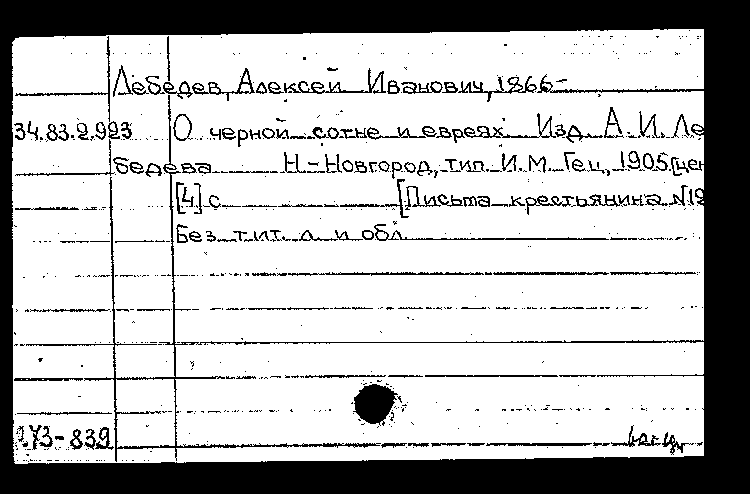 Лебедев, Алексей Иванович, 1866-
34.83.2.923 О черной сотне и евреях. Изд. А.И. Ле
бедева Н.-Новгород, тип. И.М. Гец, 1905. [цен
[4] с. [Письма крестьянина №19
Без тит. л. и обл.
273-839